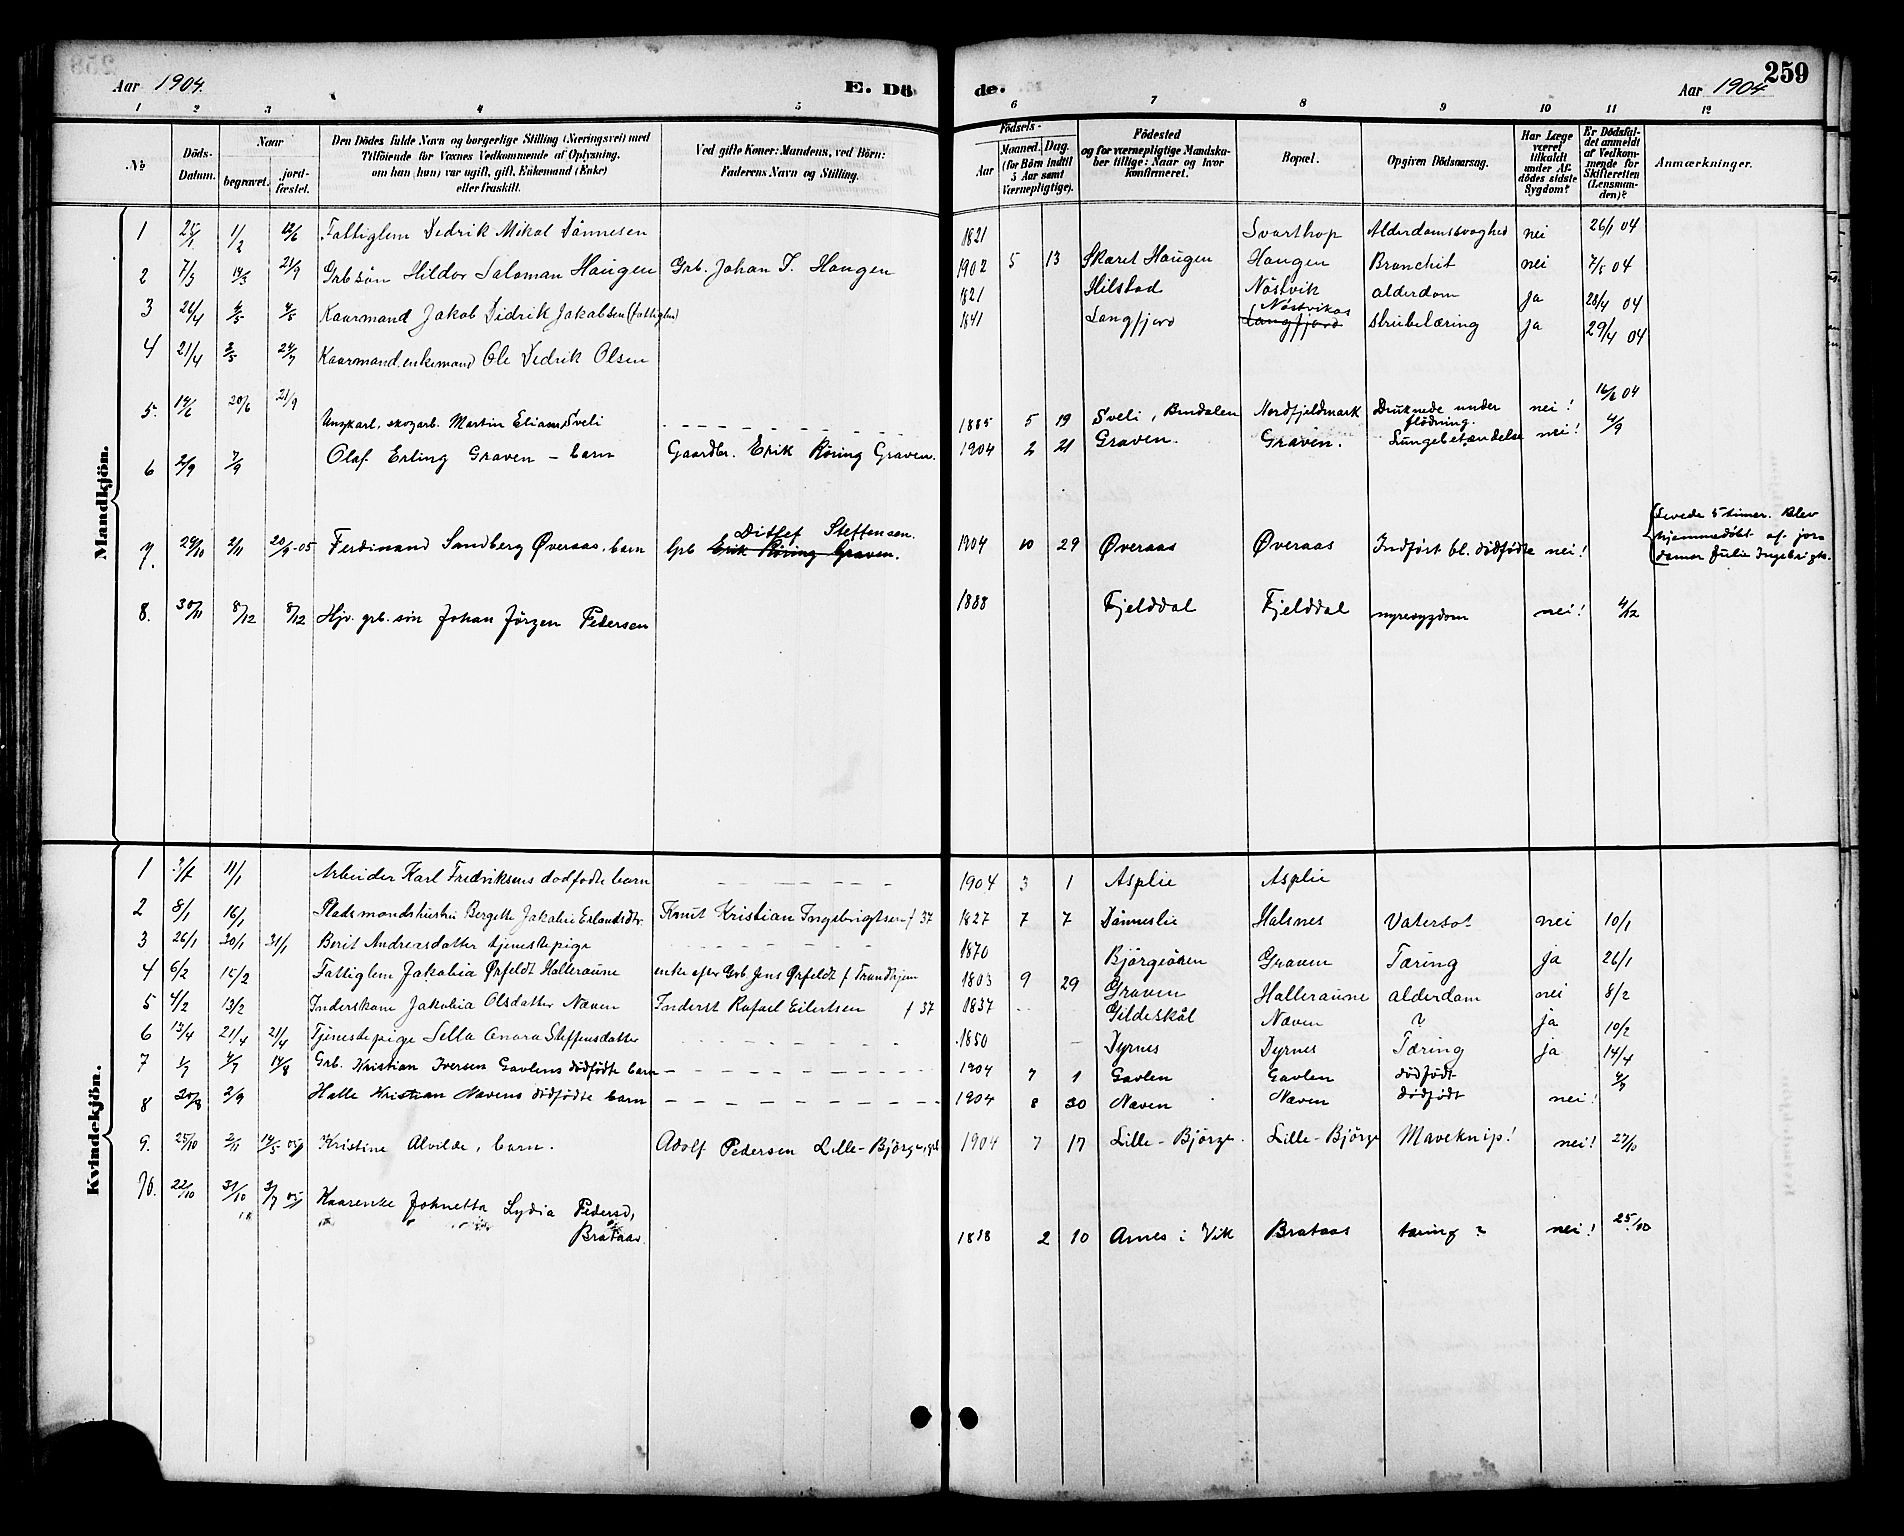 259
Aar 1904. E. Dö de. Aar 1904
1 2 3 4 5 6 7 8 9 10 11 12
No
Döds-Datum.
Naar
begravet.
jord-fæstet.
Den Dödes fulde Navn og borgerlige Stilling (Næringsvei) med
Tilföiende for Voxnes Vedkommende af Oplysning,
om han (hun) var ugift, gift, Enkemand (Enke)
eller fraskilt.
Ved gifte Koner: Mandens, ved Börn:
Faderens Navn og Stilling.
Födsels-
Aar
Maaned. Dag.
(for Börn indtil
5 Aar samt
Værnepligtige).
Födested
og for værnepligtige Mandska-
ber tillige: Naar og hvor
konfirmeret.
Bopæl.
Opgiven Dödsaarsag.
Har Læge
været
tilkaldt
under Af-
dödes sidste
Sygdom?
Er Dödsfal-
det anmeldt
af Vedkom-
mende for
Skifteretten
(Lensman-
den)?
Anmærkninger.
Mandkjön.
1 25/1 1/2 12/6 Fattiglem Didrik Mikal Dannesen 1821 Svarthop Alderdomssvaghed nei 26/1 04
2 7/3 14/3 21/9 Grb søn Hildor Saloman Haugen Grb. Johan J. Haugen 1902 5 13 Skaret Haugen Haugen Bronchit nei 7/5 04
3 26/4 4/5 4/5 Kaarmand Jakob Didrik Jakobsen (fattiglem) 1821 Hilstad Nöstvik alderdom ja 28/4 04
4 21/4 3/5 24/7 Kaarmand, enkemand Ole Didrik Olsen 1841 Langfjord Nöstvikas Langfjord strubelæring ja 29/4 04
5. 14/6 20/6 21/9 Ungkarl, skogarb. Martin Elian Sveli 1885 5 19 Sveli, Bindalen Nordfjeldmark Druknede under flödning. nei! 16/6 04
6 2/9 7/9 Olaf Erling Graven - barn Gaardbr. Erik Röring Graven. 1904 2 21 Graven. Graven. Lungebetændelse nei! 4/9
7. 29/10 2/11 20/9-05 Ferdinand Sandberg Øveraas, barn Grb Ditlef Steffensen. Erik Röring Graven. 1904 10 29 Øveraas Øveraas Indført bl. dödfödte nei! Levede 5 timer. Blev
hjemmedöbt af jor-
damor Julie Ingebrigts.
8. 30/11 8/12 8/12 Hjv. grb. sön Johan Jörgen Pedersen 1888 Fjelddal Fjelddal nyresygdom nei! 4/12
Kvindekjön.
1 11/1 Arbeider Karl Fredriksens dødfødte barn 1904 3 1 Asplie Asplie
2 8/1 16/1 Pladsmandshustru Bergitte Jakobie Erlandsdtr. Knut Kristian Ingebrigtsen f 37 1827 7 7 Dånneslie Halsnes Vatersot nei 10/1
3 26/1 30/1 31/1 Berit Andreasdatter tjenestepige 1870 Björgeören Graven Tæring ja 26/1
4 6/2 15/2 Fattiglem Jakobia Ørfeldt Halleraune enke efter Grb. Jens Ørfeldt f Trondhjem 1803 9 29 Graven Halleraune alderdam nei 8/2
5 4/2 13/2 Inderskone Jakobia Olsdatter Næven Inderst Rafael Eilertsen f 37 1837 Gildeskål Næven ? ja 10/2
6 13/4 21/4 21/4 Tjenestepige Sella Anora Steffensdatter 1850 Dyrnes Dyrnes Tæring ja 14/4
7 1/7 4/7 14/8 Grb. Kristian Iversen Gavlens dödfödte barn 1904 7 1 Gavlen Gavlen dödfödt
8 30/8 2/9 Halle Kristian Nævens dödfödte barn 1904 8 30 Næven Næven dödfödt nei!
9. 25/10 2/11 14/5 05 Kristine Alvilde, barn. Adolf Pedersen Lille-Björge, grb 1904 7 17 Lille-Björge. Lille-Björge Maveknip! nei! 27/10
10. 22/10 31/10 3/7 05 Kaarenke Johnetta Lydia Pedersd, Brataas. 2 10 Arnes i Vik Brataas tæring ? nei!